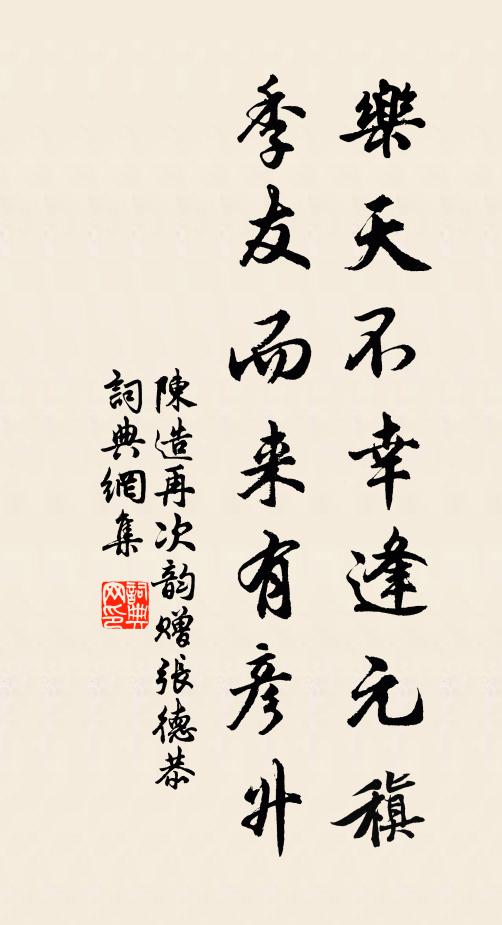 樂天不幸逢元稹
季友而来有彦升
陳造再次韵贈張德恭
詞典網集
詞典網印